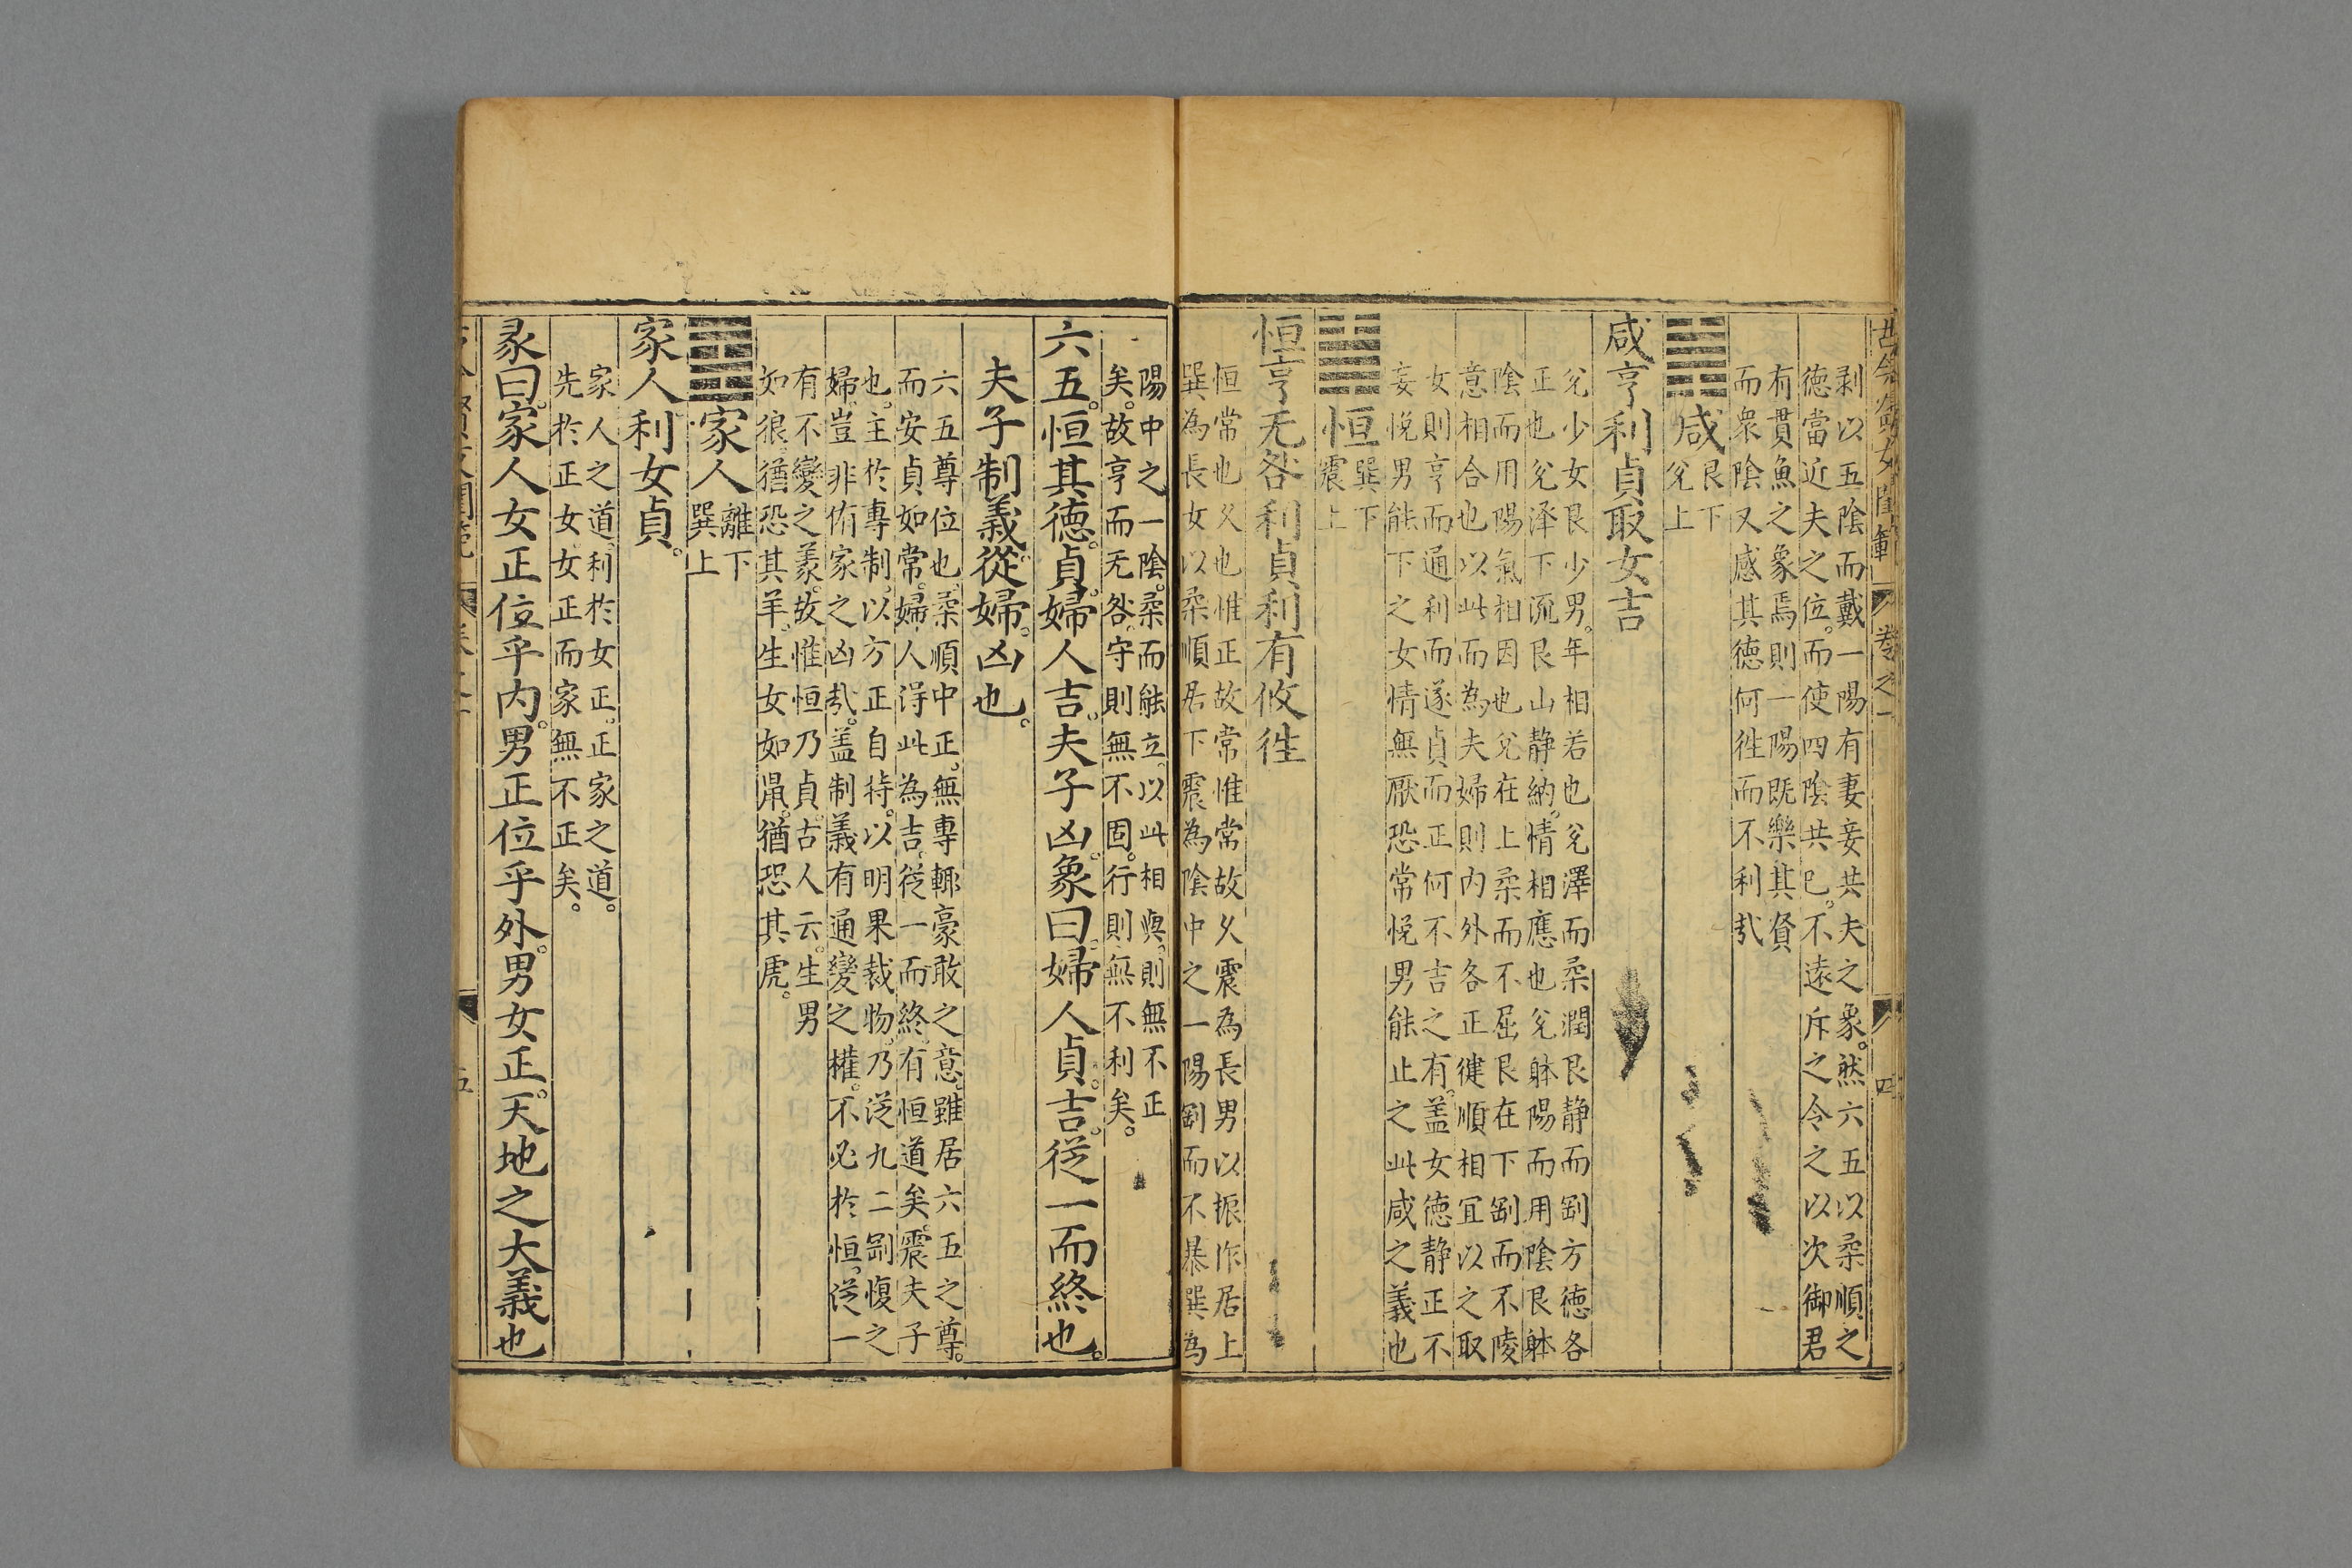 古今列女閨範 卷之一 四
剥以五陰而戴一陽有妻妾共夫之象。然六五以柔順之
徳當近夫之位。而使四陰共已。不遠斥之令之以次御君
有貫魚之象焉則一陽既樂其貧
而衆陰又感其徳何徃而不利㢤
咸 艮下
兊上
咸亨利貞取女吉
兊少女艮少男。年相若也兊澤而柔潤艮静而剛方徳各
正也兊泽下流艮山静納。情相應也兊躰陽而用陰艮躰
陰而用陽氣相因也兊在上柔而不屈艮在下剛而不陵
意相合也以此而為夫婦則內外各正徤順相宜以之取
女則亨而通利而遂貞而正何不吉之有。盖女徳静正不
妄悅男能下之女情無厭恐常悅男能止之此咸之義也
恒 巽下
震上
恒亨无咎利貞利有攸徃
恒常也乆也惟正故常惟常故乆震為長男以振作居上
巽為長女以柔順居下震為陰中之一陽剛而不暴巽為
陽中之一陰。柔而能立。以此相與。則無不正
矣。故亨而无咎。守則無不固。行則無不利矣。
六五。恒其徳。貞。婦人吉。夫子凶。象曰。婦人貞。吉。從一而終也。
夫子制義。從婦。凶也。
六五尊位也。柔順中正。無專輙豪敢之意。雖居六五之尊。
而安貞如常。婦人得此為吉。從一而終。有恒道矣。震夫子
也。主於專制。以方正自持。以明果裁物。乃從九二剛愎之
婦。豈非侑家之凶㢤。盖制義有通變之權。不必於恒。從一
有不變之義。故惟恒乃貞。古人云。生男
如狼。猶恐其羊。生女如鼠。猶恐其虎。
家人 離下
巽上
家人利女貞。
家人之道。利於女正。正家之道。
先於正女。女正而家無不正矣。
彖曰。家人女正位乎内。男正位乎外。男女正。天地之大義也
五